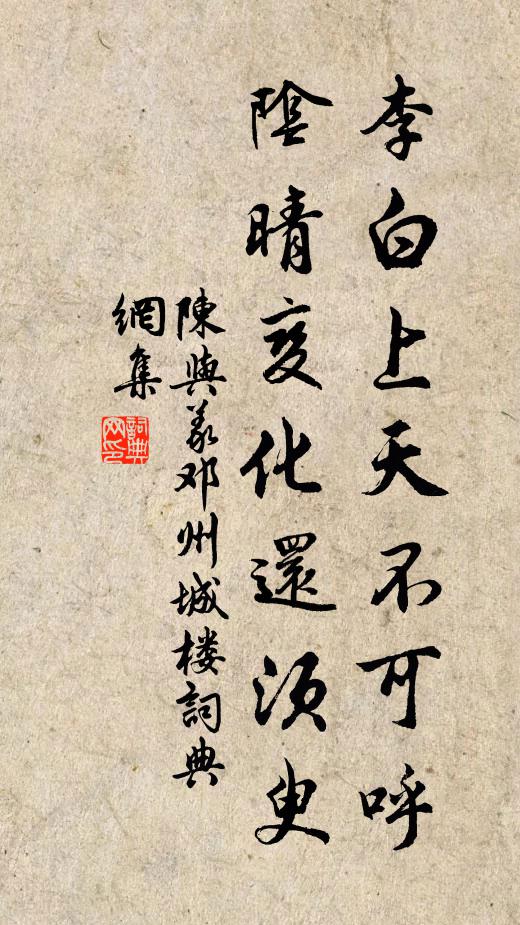 李白上天不可呼
陰晴变化還須臾
陳與義邓州城楼詞典
網集
詞典
网印